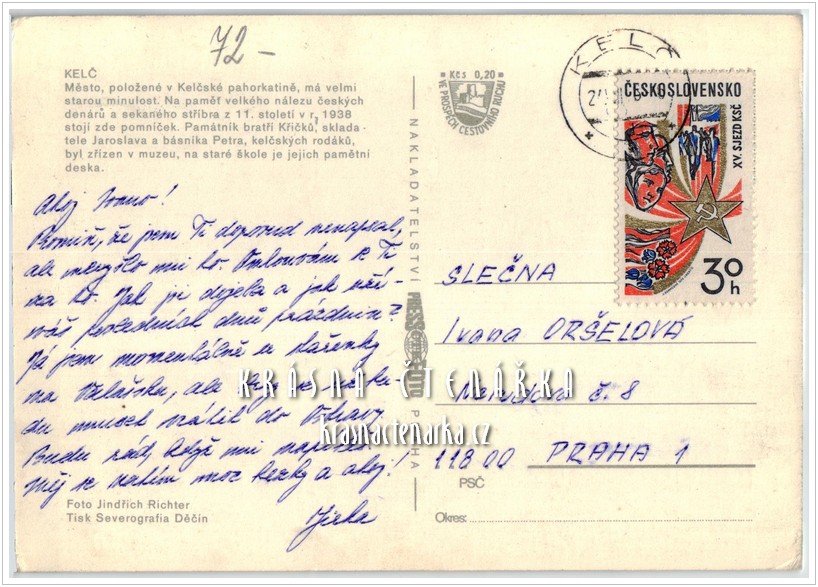 72-
KELČ
Město, položené v Kelčské pahorkatině, má velmi
starou minulost. Na paměť velkého nálezu českých
denárů a sekaného stříbra z 11. století v r. 1938
stojí zde pomníček. Památník bratří Křičků, sklada-
tele Jaroslava a básníka Petra, kelčských rodáků,
byl zřízen v muzeu, na staré škole je jejich pamětní
deska.
Ahoj Ivano!
Promiň, že jsem Ti doposud nenapsal,
ale nevyšlo mi to. Omlouvám se Ti
za to. Jak jsi dojela a jak užívá-
posledních dnů prázdnin?
Já jsem momentálně u
na Valašsku, ale
du muset vrátit do Ostravy
Budu rád, když mi napíšeš
Měj se zatím moc hezky a ahoj!
Jirka
Foto Jindřich Richter
Tisk Severografia Děčín
Kčs 0,20
VE PROSPĚCH CESTOVNÍHO RUCHU
NAKLADATELSTVÍ PRESSFOTO PRAHA
KELČ
ČESKOSLOVENSKO
XV. SJEZD KSČ
30h
SLEČNA
Ivana ORŠELOVÁ
č. 8
11800 PRAHA 1
PSČ
Okres:
KRÁSNÁ ČTENÁŘKA
krasnactenarka.cz